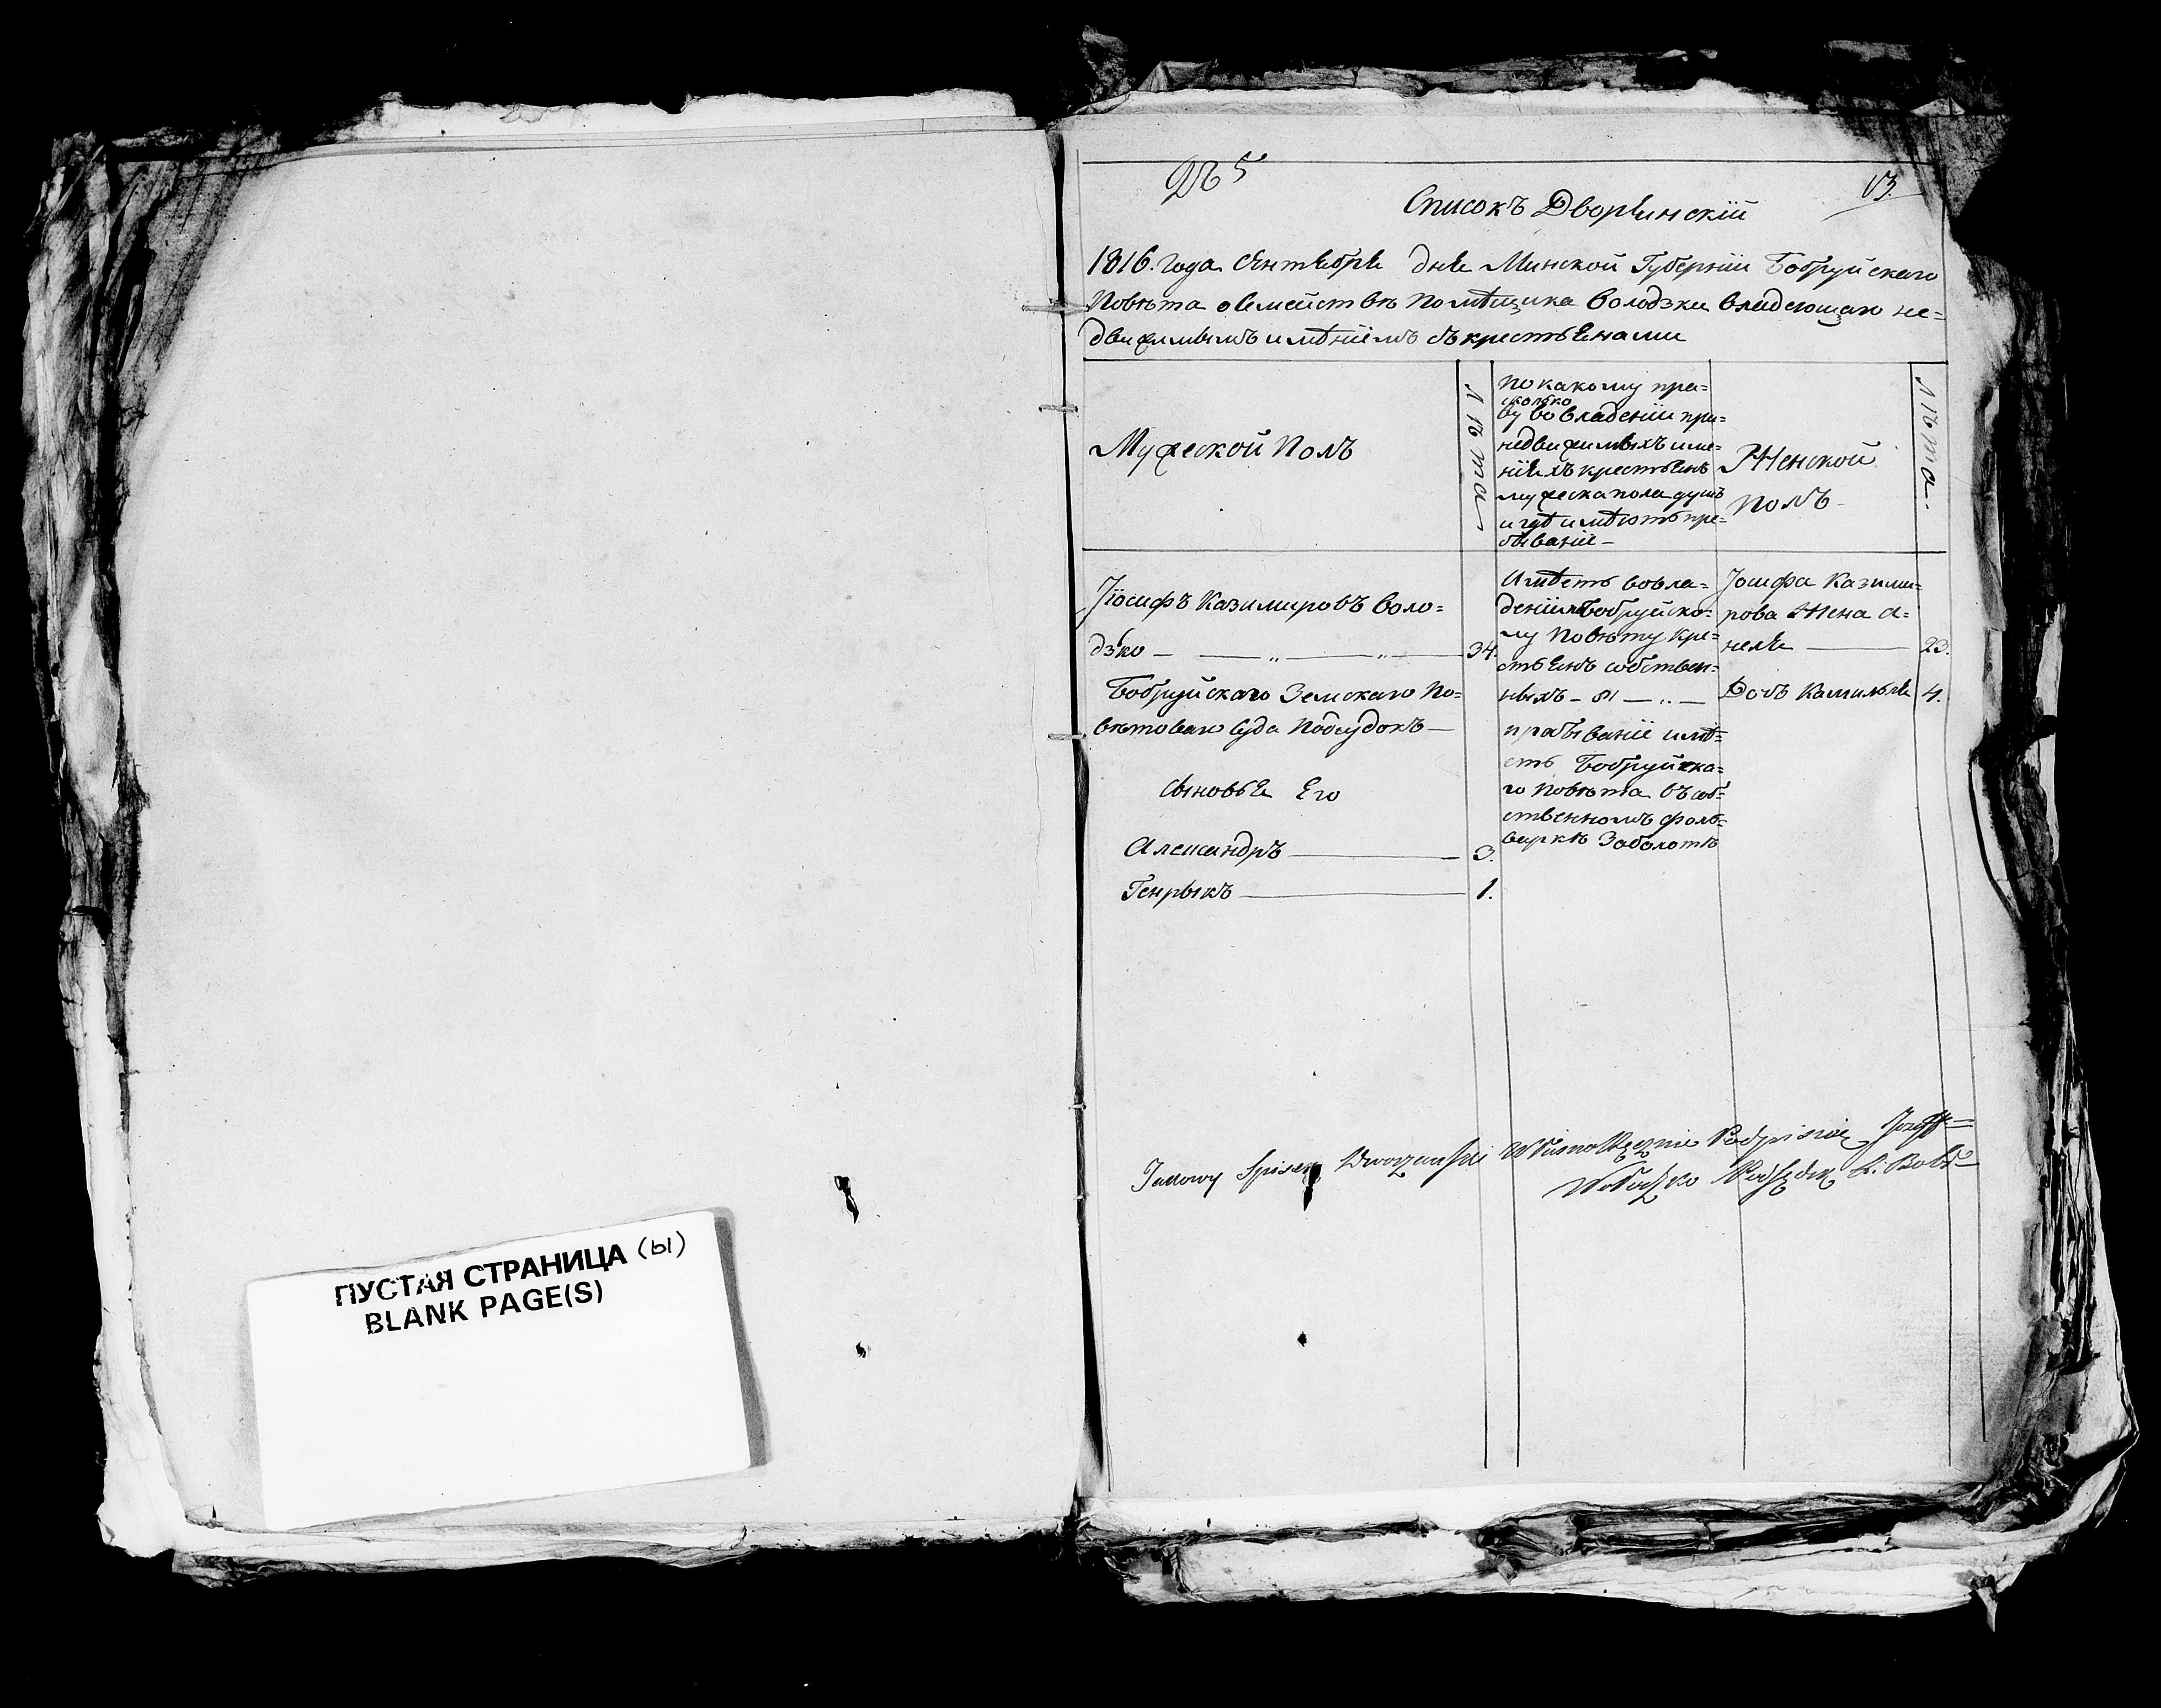 ПУСТАЯ СТРАНИЦА (ы)
BLANK PAGE(S)
№ 5
13.
Списокъ Дворянскій
1816. года Сентября дня Минской Губерніи Бобруйскаго
Повѣта о Семействѣ Помѣщика Володзки владеющаго не=
движимымъ имѣніемъ съ крестьянами
Мужеской Полъ
Лѣта
По какому пра=
сколко
ву во владеніи при
недвижимыхъ име=
ніяхъ крестьянъ
мужеска пола душъ
и гдѣ имѣютъ пре=
бываніе —
Женской
Полъ
Лѣта
Іосифъ Казимировъ Воло=
дзко — 34.
Бобруйскаго Земскаго По=
вѣтоваго Суда Подсудокъ —
Сыновья Его
Александръ — 3.
Генрыкъ — 1.
Имѣетъ во вла=
деніи Бобруйско=
му Повѣту кре=
стьянъ собствен=
ныхъ — 81 —
прабываніе имѣ=
етъ Бобруйска=
го Повѣта въ соб=
ственномъ фоль=
варкѣ Заболотѣ
Іосифа Казими=
рова Жена А=
неля — 23.
Дочь Камилья 4.
Jakowy Spisek Dworzanski Własno Ręcznie Podpisuię Jozeff
Wołodzko Podsędek P. Bobr